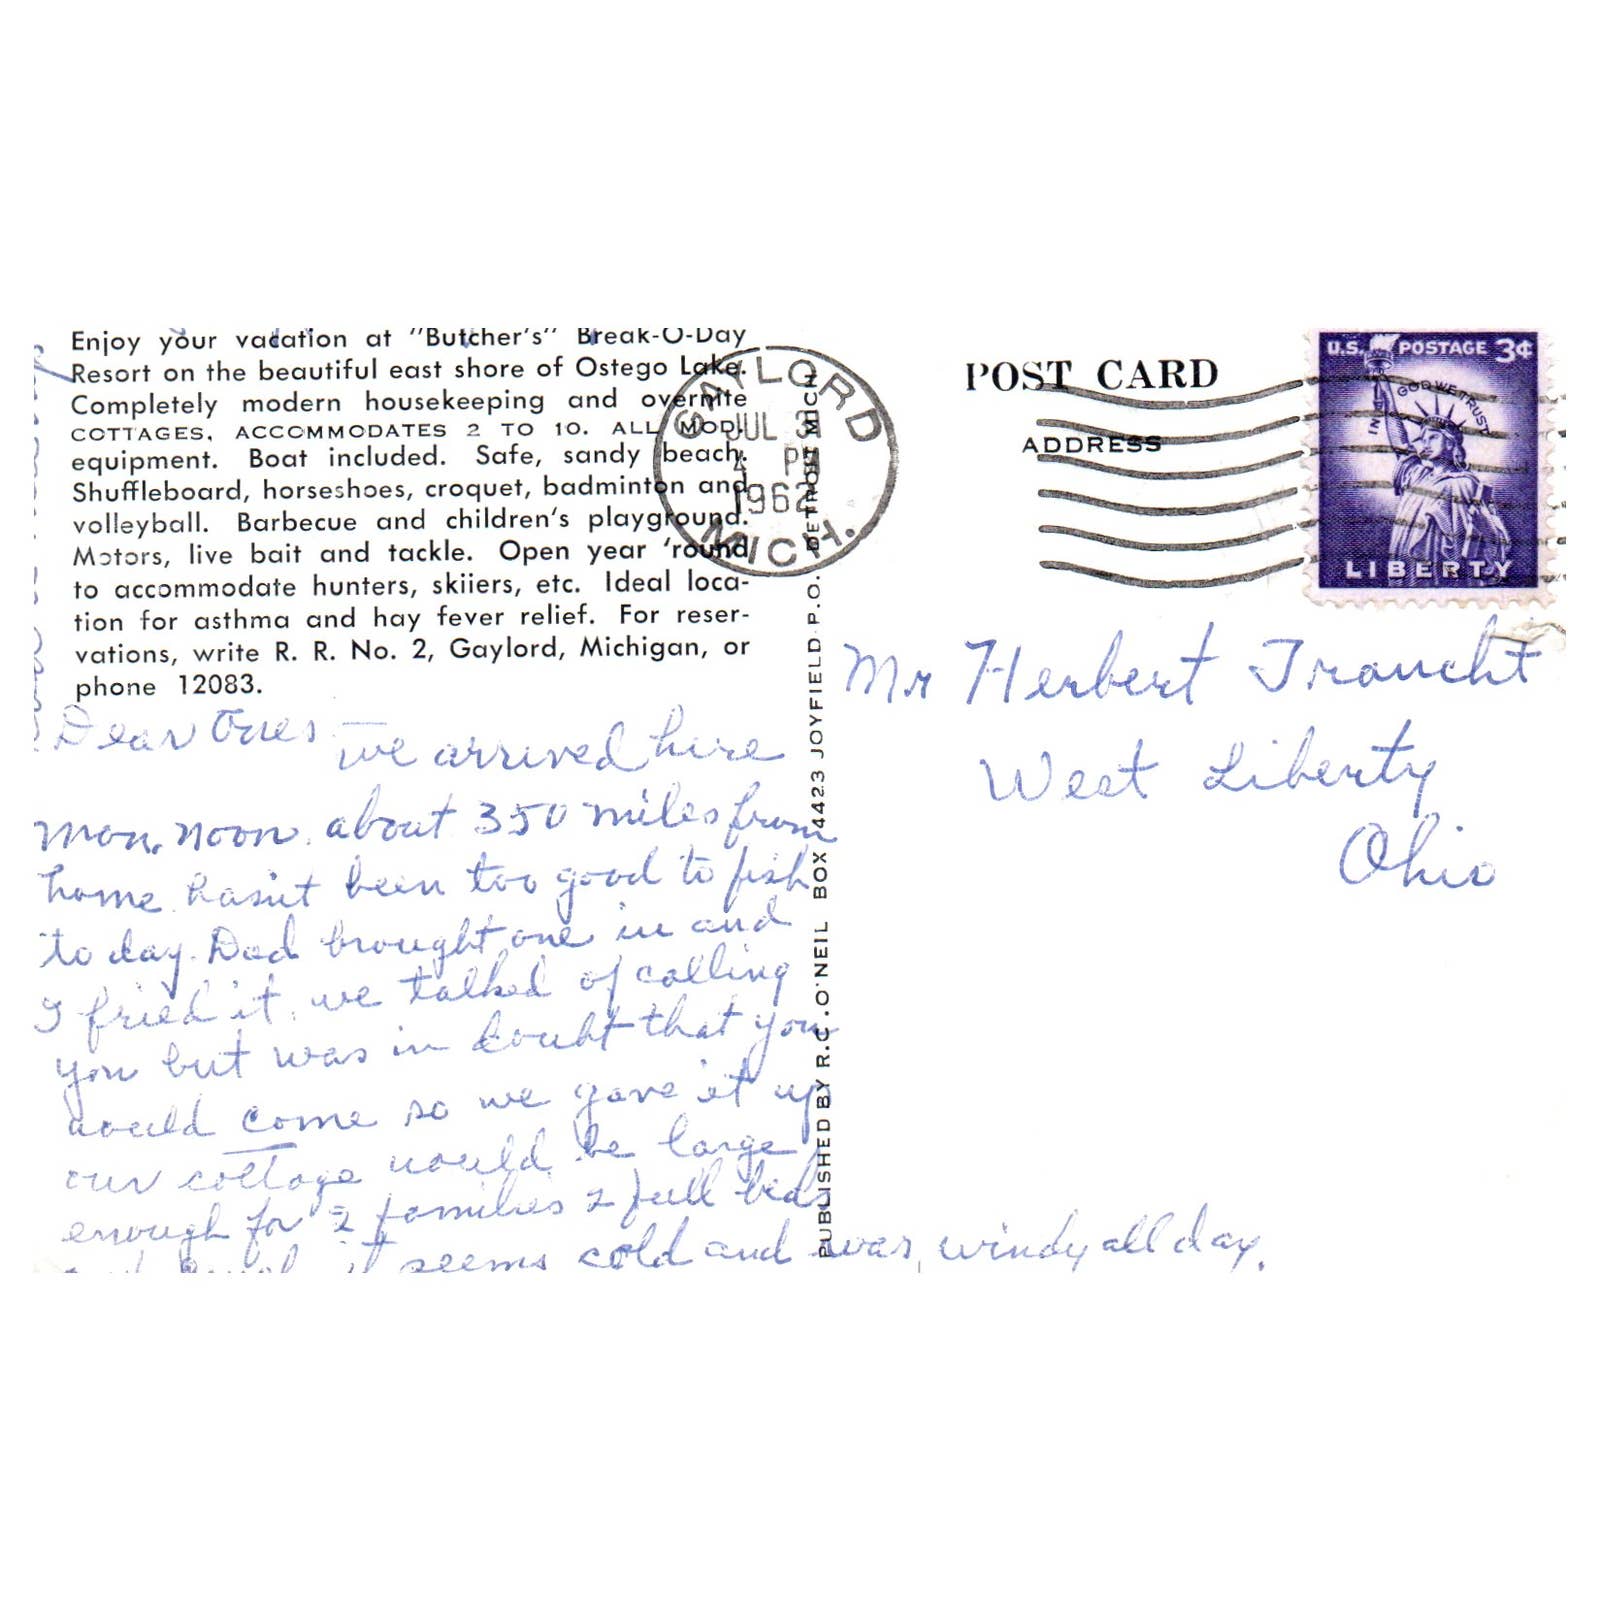 Enjoy your vacation at "Butcher's" Break-O-Day
Resort on the beautiful east shore of Ostego Lake.
Completely modern housekeeping and overnite
COTTAGES, ACCOMMODATES 2 TO 10. ALL MOD.
equipment. Boat included. Safe, sandy beach.
Shuffleboard, horseshoes, croquet, badminton and
volleyball. Barbecue and children's playground.
Motors, live bait and tackle. Open year 'round
to accommodate hunters, skiiers, etc. Ideal loca-
tion for asthma and hay fever relief. For reser-
vations, write R. R. No. 2, Gaylord, Michigan, or
phone 12083.
Dear Ones — we arrived here
Mon. noon. about 350 miles from
home. hasn't been too good to fish
to day. Dad brought one in and
I fried it. we talked of calling
you but was in doubt that you
would come so we gave it up
our cottage would be large
enough for 2 families 2 full beds
it seems cold and was windy all day.
PUBLISHED BY R.C. O'NEIL BOX 4423 JOYFIELD P.O. DETROIT MICH
GAYLORD
JUL 31
4 PM
1962
MICH.
POST CARD
ADDRESS
U.S. POSTAGE 3¢
IN GOD WE TRUST
LIBERTY
Mr Herbert Traucht
West Liberty
Ohio